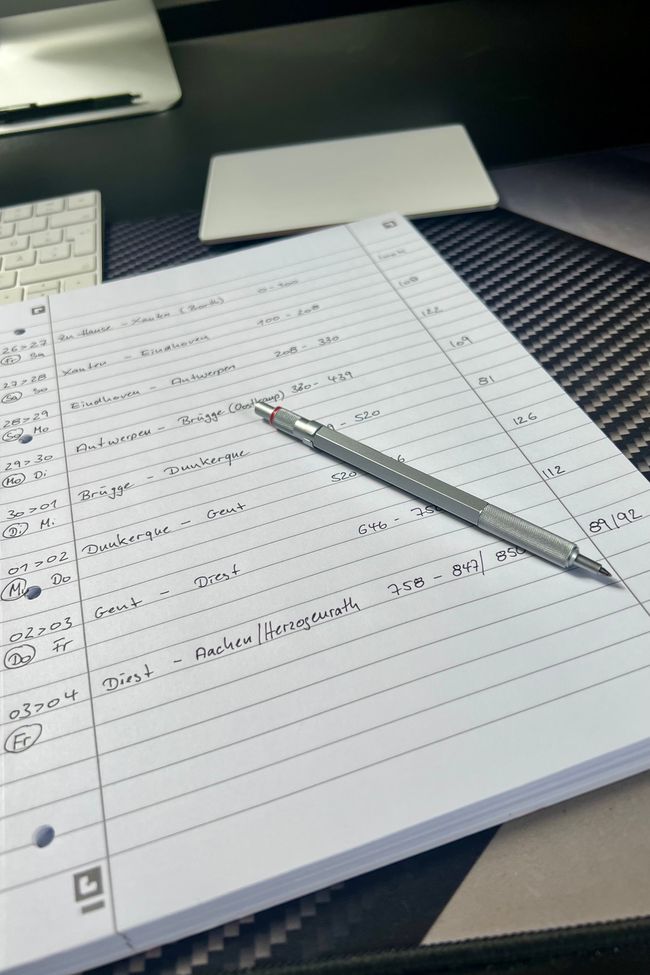 26>27 zu Hause - Xanten (Borth) 0 - 100
Fr Sa
27>28 Xanten - Eindhoven 100 - 208 108
Sa So
28>29 Eindhoven - Antwerpen 208 - 330 122
So Mo
29>30 Antwerpen - Brügge (Oostkamp) 330 - 439 109
Mo Di
30>01 Brügge - Dunkerque 9 - 520 81
Di Mi
01>02 Dunkerque - Gent 520 6 126
Mi Do
02>03 Gent - Diest 646 - 758 112
Do Fr
03>04 Diest - Aachen/Herzogenrath 758 - 847/ 850 89/92
Fr